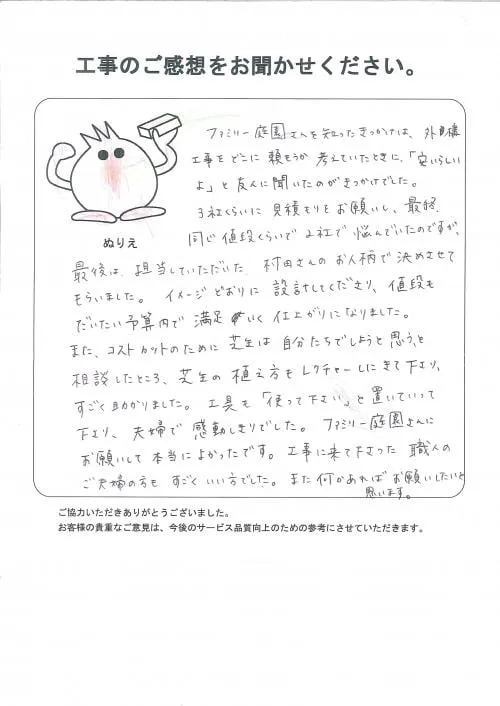 工事のご感想をお聞かせください。
ファミリー庭園さんを知ったきっかけは、外構
工事をどこに頼もうか考えていたときに、「安いらしい
よ」と友人に聞いたのがきっかけでした。
3社くらいに見積もりをお願いし、最終
同じ値段くらいで2社で悩んでいたのですが、
ぬりえ
最後は、担当していただいた村田さんのお人柄で決めさせて
もらいました。イメージどおりに設計してくださり、値段も
だいたい予算内で満足いく仕上がりになりました。
また、コストカットのために芝生は自分たちでしようと思うと
相談したところ、芝生の植え方もレクチャーしにきて下さり、
すごく助かりました。工具も「使って下さい」と置いていって
下さり、夫婦で感動しきりでした。ファミリー庭園さんに
お願いして本当によかったです。工事に来て下さった職人の
ご夫婦の方もすごくいい方でした。また何かあればお願いしたいと
思います。
ご協力いただきありがとうございました。
お客様の貴重なご意見は、今後のサービス品質向上のための参考にさせていただきます。